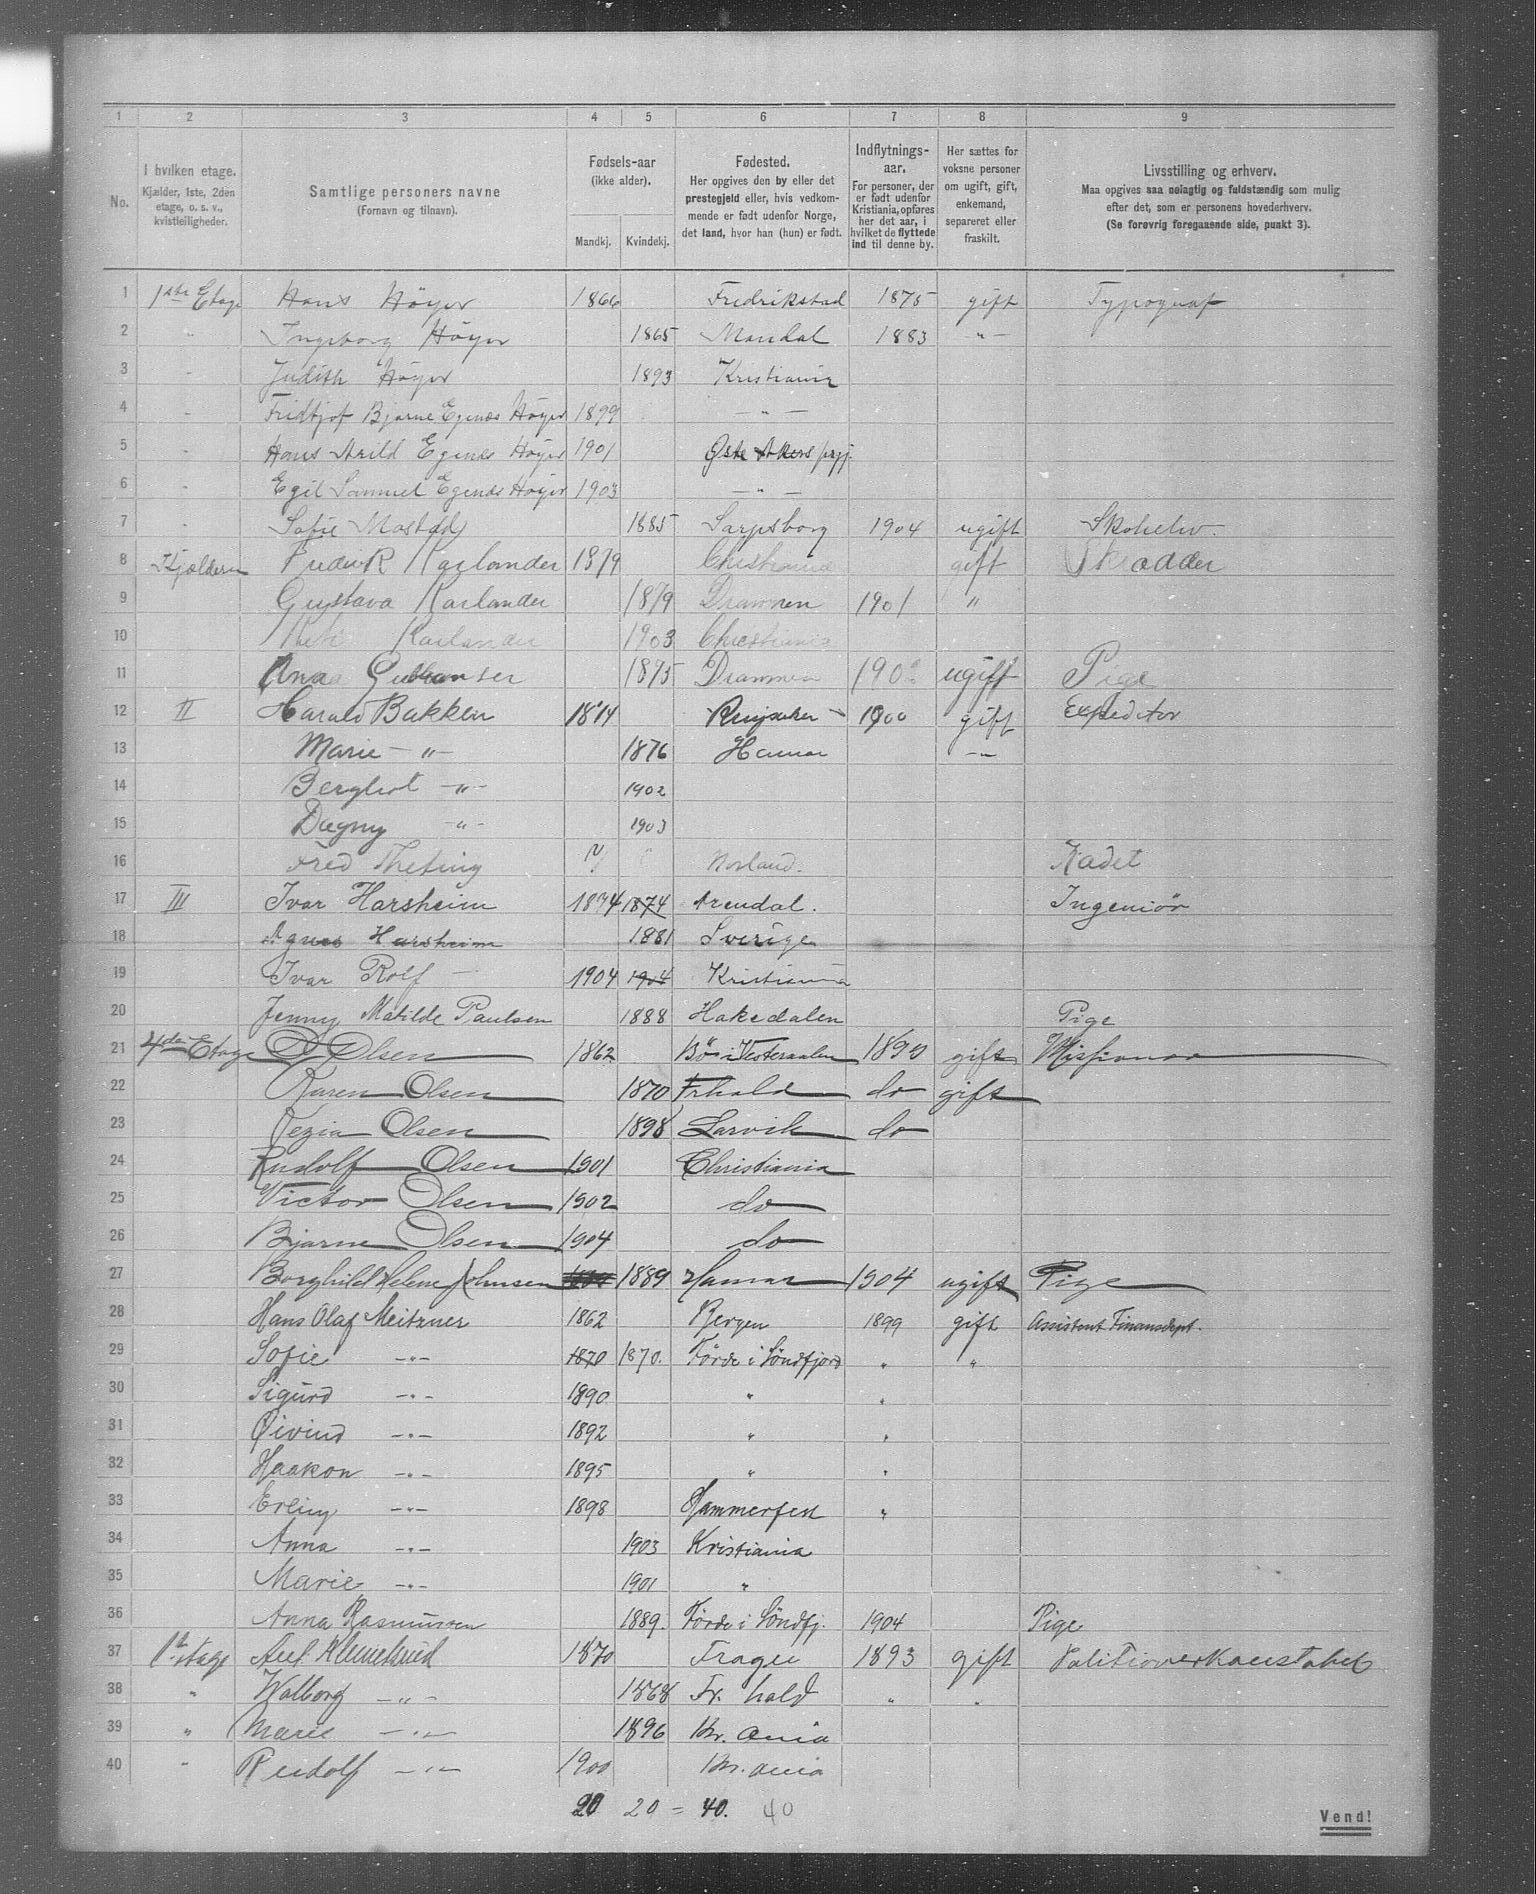 1 2 3 4 5 6 7 8 9
No.
I hvilken etage.
Kjælder, 1ste, 2den
etage, o. s. v.,
kvistleiligheder.
Samtlige personers navne
(Fornavn og tilnavn).
Fødsels-aar
(ikke alder).
Mandkj. Kvindekj.
Fødested.
Her opgives den by eller det
prestegjeld eller, hvis vedkom-
mende er født udenfor Norge,
det land, hvor han (hun) er født.
Indflytnings-
aar.
For personer, der
er født udenfor
Kristiania, opføres
her det aar, i
hvilket de flyttede
ind til denne by.
Her sættes for
voksne personer
om ugift, gift,
enkemand,
separeret eller
fraskilt.
Livsstilling og erhverv.
Maa opgives saa nøiagtig og fuldstændig som mulig
efter det, som er personens hovederhverv.
(Se forøvrig foregaaende side, punkt 3).
1 1ste Etage Hans Höyer 1866 Fredrikstad 1875 gift Typograf
2 " Ingeborg Höyer 1865 Mandal 1883 -"-
3 " Judith Höyer 1893 Kristiania
4 " Fridtjof Bjarne Egenæs Höyer 1899 -"-
5 " Hans Arild Egenæs Höyer 1901 Østre Akers
6 " Egil Samuel Egenæs Höyer 1903 -"-
7 " Sofie Mostad 1885 Sarpsborg 1904 ugift
8 Kjælderen Fredrik Karlander 1879 Christiania gift Skrædder
9 Gustava Karlander 1879 Drammen 1901 "
10 Karlander 1903 Christiania
11 Anna 1895 Drammen ugift Pige
12 II Harald Bakken 1874 Ringsaker 1900 gift Expeditør
13 Marie -"- 1876 Hamar -"-
14 Bergliot -"- 1902
15 Dagny -"- 1903
16 Fred Theting ? Norland. Kadet
17 III Ivar Harsheim 1874 1874 Arendal. Ingeniör
18 Agnes Harsheim 1881 Sverige
19 Ivar Rolf - 1904 1904 Kristiania
20 Jenny Matilde Paulsen 1888 Hakedalen Pige
21 4de Etage O Olsen 1862 Bö i Vesteraalen 1899 gift Missionær
22 Karen Olsen 1870 Frhald do gift
23 Kezia Olsen 1898 Larvik do
24 Rudolf Olsen 1901 Christiania
25 Victor Olsen 1902 do
26 Bjarne Olsen 1904 do
27 Borghild Helene Johnsen 1889 Hamar 1904 ugift Pige
28 Hans Olaf Meitzner 1862 Bergen 1899 gift Assistent Finansdept.
29 Sofie -"- 1870 1870. Förde i Söndfjord " "
30 Sigurd -"- 1890 " "
31 Øivind -"- 1892 " "
32 Haakon -"- 1895 " "
33 Erling -"- 1898 Hammerfest "
34 Anna -"- 1903 Kristiania
35 Marie -"- 1901 "
36 Anna Rasmussen 1889. Förde i Söndfj. 1904 Pige
37 1ste etage 1870 1893 gift Politioverkonstabel
38 " Walborg -"- 1868 Fr. hald " "
39 " Marie -"- 1896 Kr. ania
40 " Rudolf -"- 1900 Kr. ania
20 20 = 40. 40
Vend!